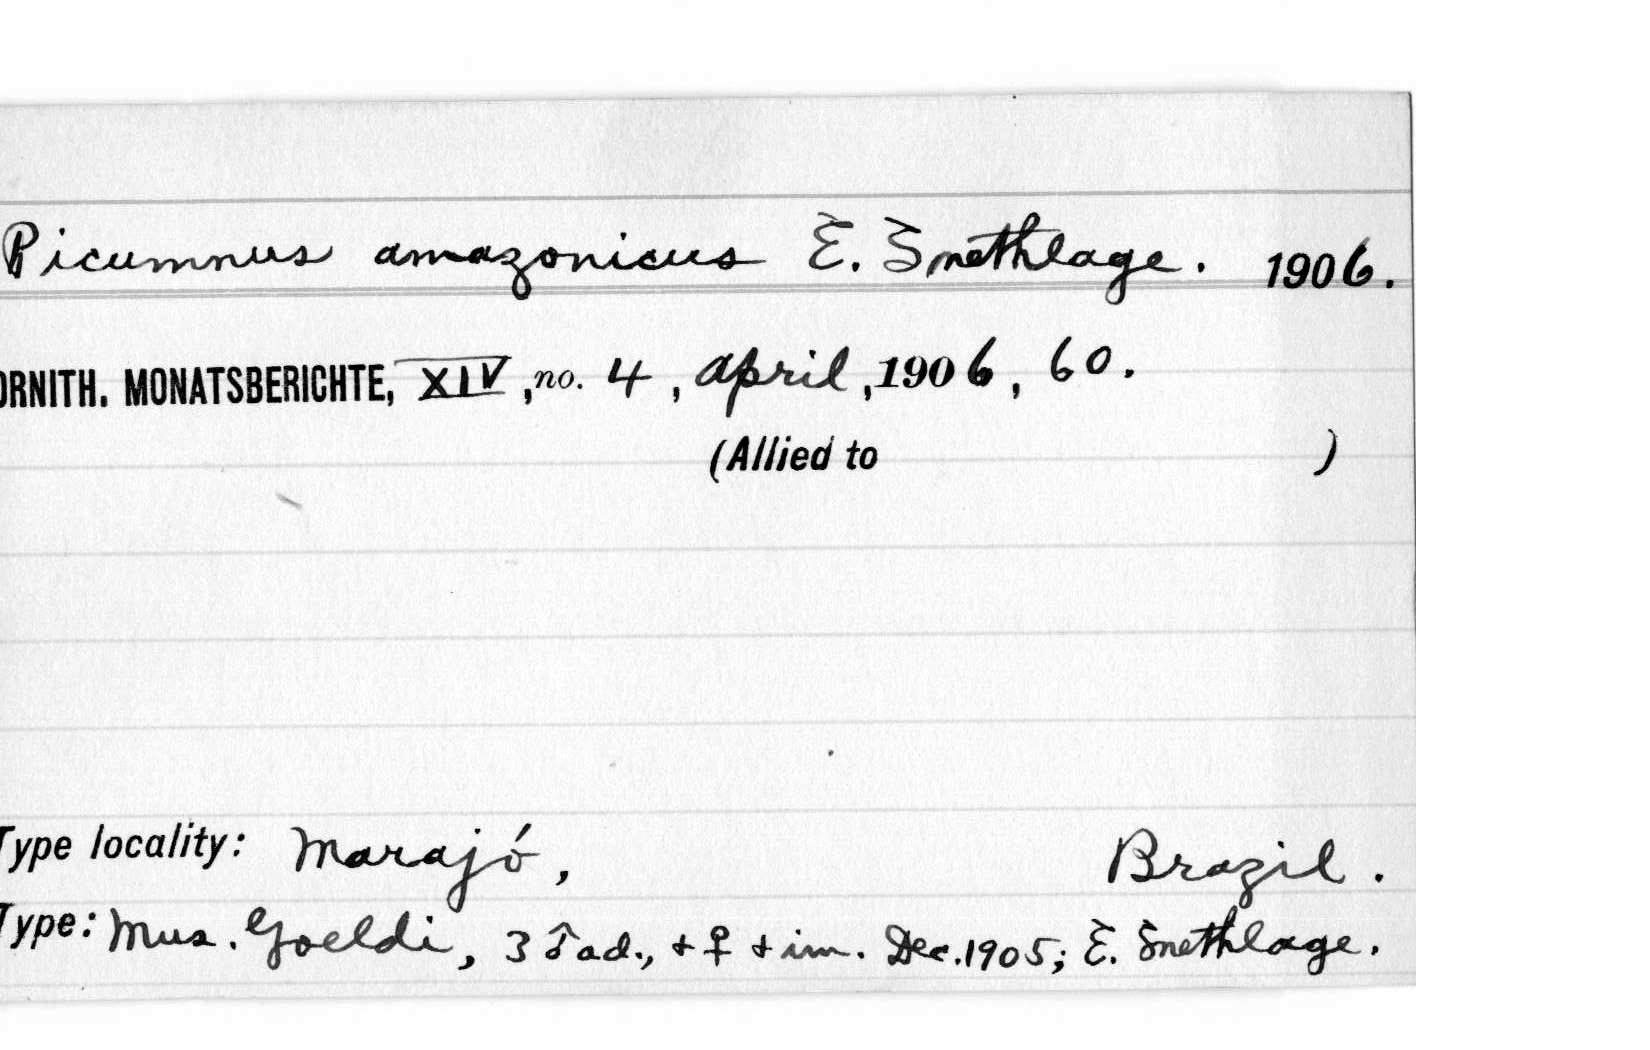 Picumnus amazonicus E. Snethlage. 1906.
ORNITH. MONATSBERICHTE, XIV, no. 4, April, 1906, 60.
(Allied to )
Type locality: Marajó, Brazil.
Type: Mus. Goeldi, 3 ♂ ad., + ♀ + im. Dec. 1905; E. Snethlage.